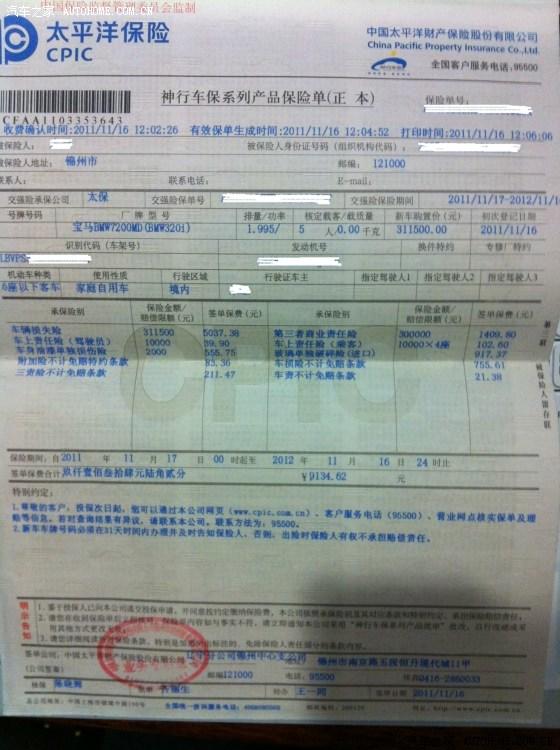 汽车之家 AUTOHOME.COM.CN
中国保险监督管理委员会监制
太平洋保险
CPIC
中国太平洋财产保险股份有限公司
China Pacific Property Insurance Co.,Ltd.
全国客户服务电话,95500
CFAA1103353643
神行车保系列产品保险单(正 本)
保险单号:
收费确认时间:2011/11/16 12:02:26 有效保单生成时间:2011/11/16 12:04:52 打印时间:2011/11/16 12:06:06
被保险人: 被保险人身份证号码(组织机构代码):
被保险人地址: 锦州市 邮编: 121000
联系人: 联系电话: E-mail:
交强险承保公司 太保 交强险保单号 交强险保险期间 2011/11/17-2012/11/16
号牌号码 厂 牌 型 号 排量/功率 核定载客/载质量 新车购置价(元) 初次登记日期
宝马BMW7200MD(BMW320i) 1.995/ 5 人/0.00 千克 311500.00 2011/11/16
识别代码(车架号) 发动机号 换件特约 专修厂特约
LBVPS
机动车种类 使用性质 行驶区域 行驶证车主 指定驾驶人1 指定驾驶人2 指定驾驶人3
6座以下客车 家庭自用车 境内
承保险别 保险金额/赔偿限额(元) 签单保费(元) 承保险别 保险金额/赔偿限额(元) 签单保费(元)
车辆损失险 311500 5037.38 第三者商业责任险 300000 1409.60
车上责任险(驾驶员) 10000 39.90 车上责任险(乘客) 10000×4座 102.60
车身油漆单独损伤险 2000 555.75 玻璃单独破碎险(进口) 917.37
附加险不计免赔特约条款 83.36 车损险不计免赔条款 755.61
三责险不计免赔条款 211.47 车责不计免赔条款 21.38
第二联 被保险人留存联
保险期间:自2011 年 11 月 17 日 00 时起至 2012 年 11 月 16 日 24 时止
签单保费合计玖仟壹佰叁拾肆元陆角贰分 ¥9134.62 元
特别约定:
1.尊敬的客户:投保次日起,您可以通过本公司网页(www.cpic.com.cn)、客户服务电话(95500)、营业网点核实保单及理
赔等信息。若对查询结果有异议,请联系本公司。联系方法为:95500。
2.新车车牌号码必须在31天时间内办理并及时告知保险人,否则,出险时保险人有权不承担赔偿责任。
明示告知
1.鉴于投保人已向本公司递交投保申请,并同意按约定缴纳保险费,本公司依照承保险别及其对应条款和特别约定,承担保险责任。
签单公司:中国太平洋财产保险股份有限公司辽宁分公司锦州中心支公司 锦州市南京路五段恒升现代城11甲
(公司签章) 邮编121000 电话:95500 传真0416-2860033
核保 经办 王一同 签单日期 2011/11/16